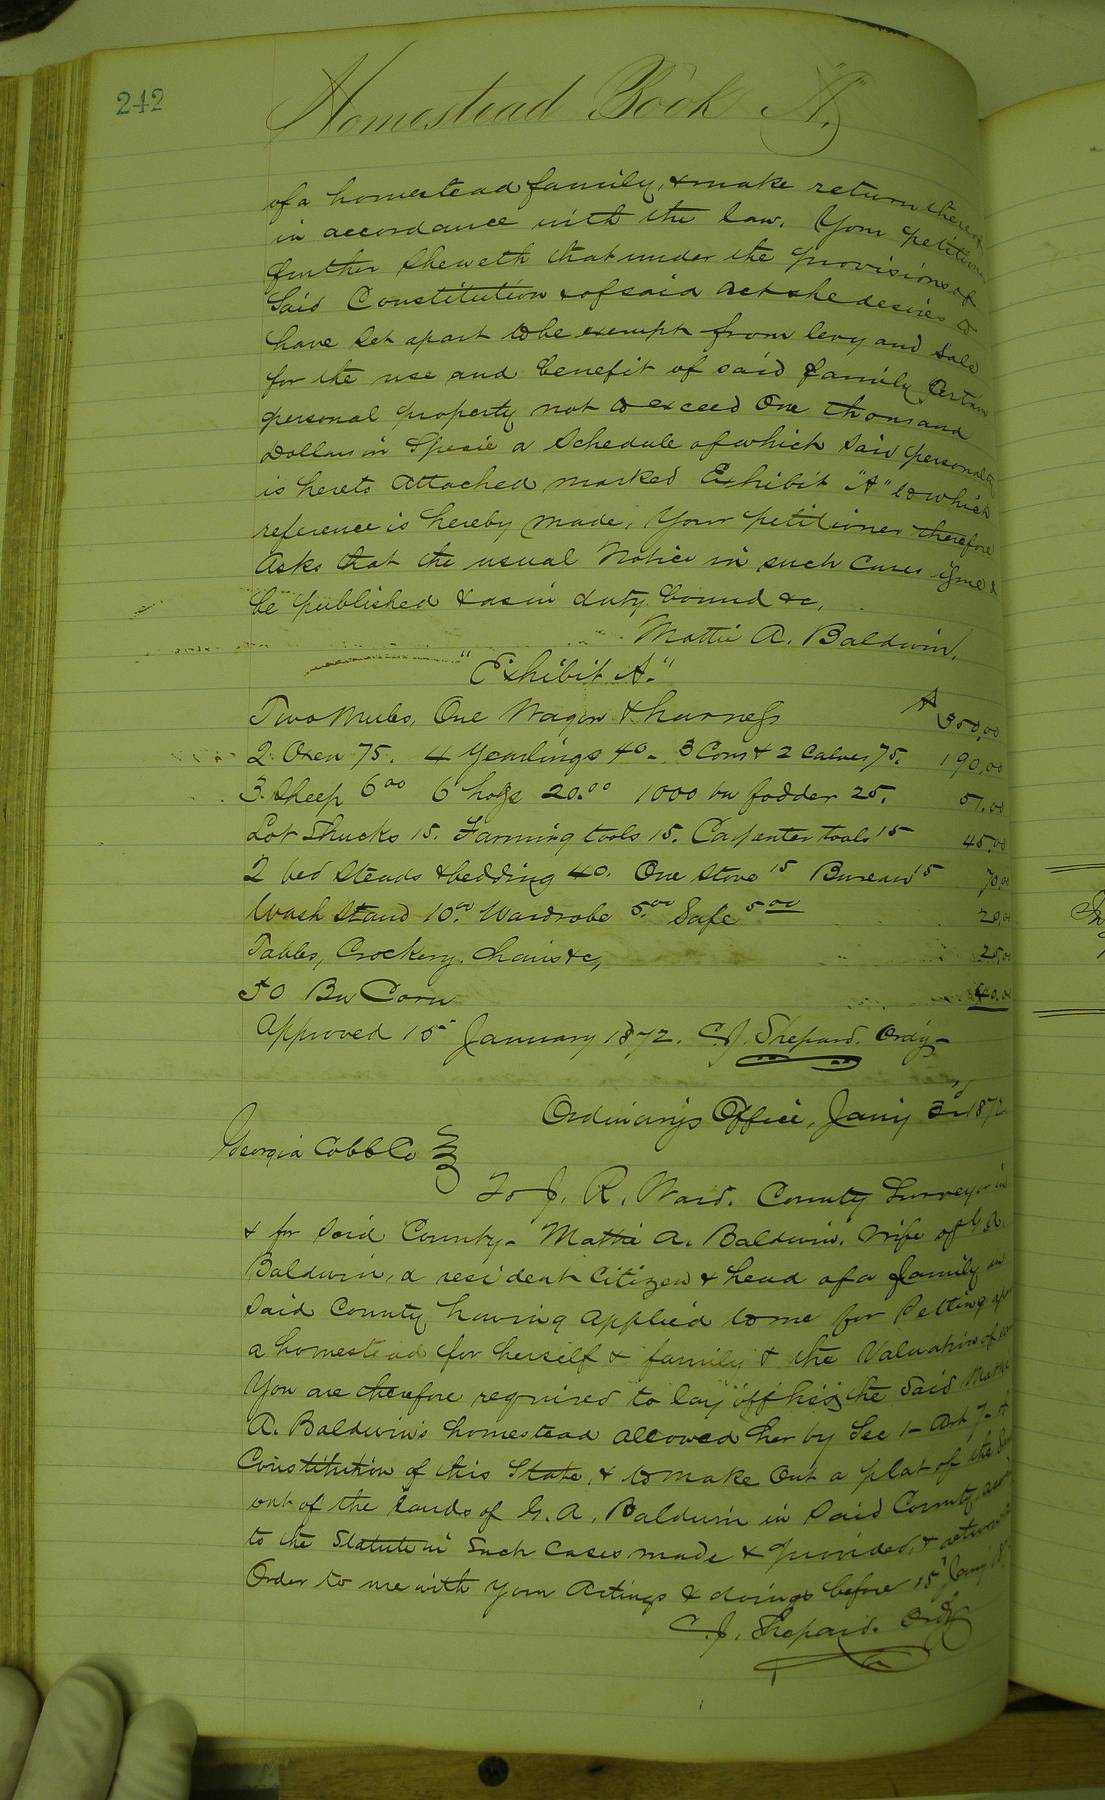 242
Homestead Book "A."
of a homestead family, & make return thereof
in accordance with the law. Your petitioner
further sheweth that under the provisions of
Said Constitution & of said Act she desires to
have Set apart to be exempt from levy and Sale
for the use and benefit of said family Certain
personal property not to exceed One thousand
Dollars in Specie a Schedule of which Said personalty
is hereto Attached marked Exhibit "A" to which
reference is hereby made, Your petitioner therefore
Asks that the usual Notice in such Cases issue &
be published & as in duty bound &c.
Mattie A. Baldwin.
"Exhibit A."
Two Mules, One Wagon & harness 350.00
2 Oxen 75. 4 Yearlings 40 - 3 Cows & 2 Calves 75. 190.00
3 Sheep 6 00 6 hogs 20.00 1000 bu fodder 25. 51.00
Lot Shucks 15. Farming tools 15. Carpenter tools 15 45.00
2 bed Steads & bedding 40. One Stove 15 Bureau 15 70.00
Wash Stand 10.00 Wardrobe 5.00 Safe 5 00 20.00
Tables, Crockery. Chairs &c, 25.00
50 Bu Corn
Approved 15 January 1872. C.J. Shepard. Ordy -
Ordinarys Office, Jany 3d 1872
Georgia Cobb Co
To J. R. Ward. County Surveyor in
& for Said County - Mattie A. Baldwin. Wife of G. A.
Baldwin, a resident Citizen & head of a family in
Said County having Applied to me for Setting apart
a homestead for herself & family & the Valuation of
You are therefore required to lay off the Said Mattie
A. Baldwin's homestead allowed her by Sec 1 - Art 7 -
Constitution of this State, & to make Out a plat of the
out of the lands of G. A. Baldwin in Said County
to the Statute in Such Cases made & provided, & return
Order to me with your Actings & doings before 15 Jany
C. J. Shepard. Ordy